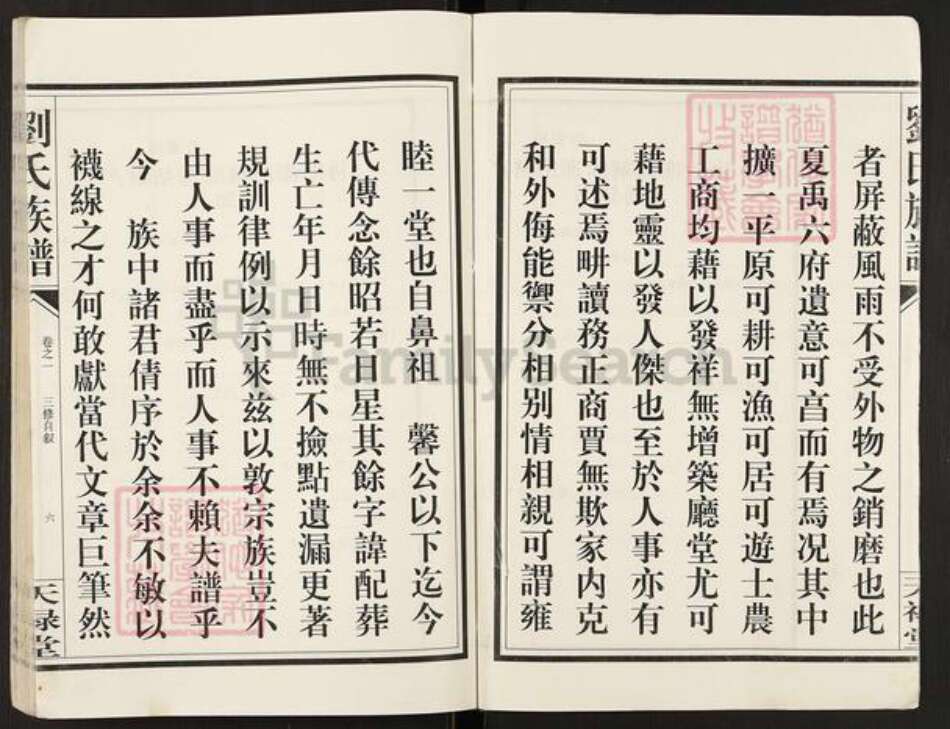 者屏蔽風雨不受外物之銷磨也此
夏禹六府遺意可亯而有焉况其中
擴一平原可耕可漁可居可遊士農
工商均藉以發祥無增築廳堂尤可
藉地靈以發人傑也至於人事亦有
可述焉畊讀務正商賈無欺家内克
和外侮能禦分相别情相親可謂雍
睦一堂也自鼻祖　馨公以下迄今
代傳念餘昭若日星其餘字諱配葬
生亡年月日時無不撿點遺漏更著
規訓律例以示來兹以敦宗族豈不
由人事而盡乎而人事不賴夫譜乎
今　族中諸君倩序於余余不敏以
襪線之才何敢獻當代文章巨筆然
劉氏族譜
卷之一
三修自叙
六
天禄堂
FamilySearch